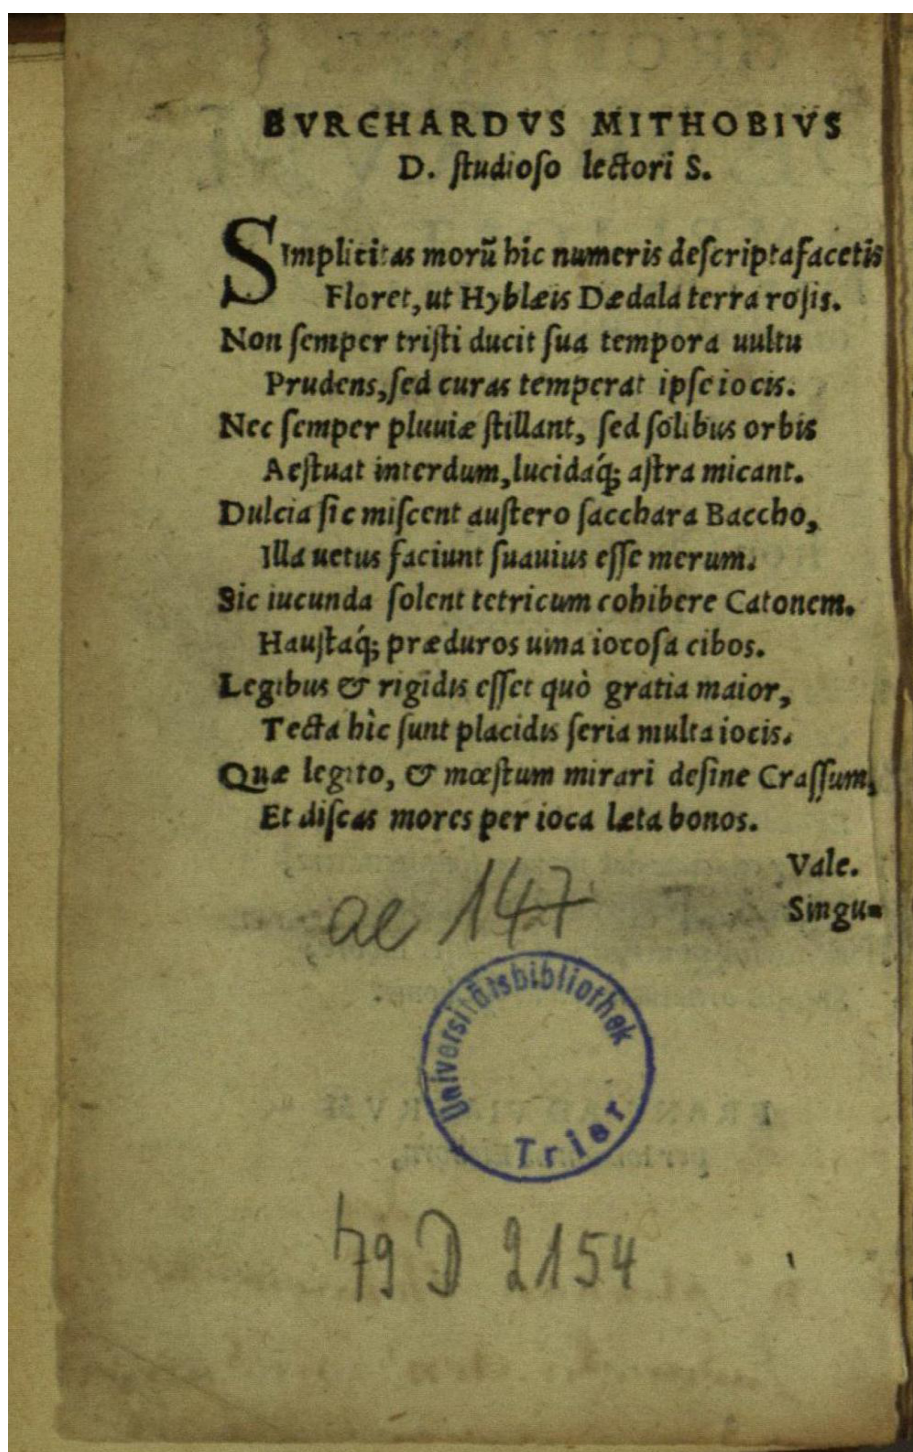 BVRCHARDVS MITHOBIVS
D. ſtudioſo lectori S.
SImplicitas morū hic numeris deſcripta facetis
Floret, ut Hyblæis Dædala terra roſis.
Non ſemper triſti ducit ſua tempora uultu
Prudens, ſed curas temperat ipſe iocis.
Nec ſemper pluuiæ ſtillant, ſed ſolibus orbis
Aeſtuat interdum, lucidaq́; aſtra micant.
Dulcia ſic miſcent auſtero ſacchara Baccho,
Illa uetus faciunt ſuauius eſſe merum.
Sic iucunda ſolent tetricum cohibere Catonem.
Hauſtaq́; præduros uina iocoſa cibos.
Legibus & rigidis eſſet quò gratia maior,
Tecta hìc ſunt placidis ſeria multa iocis.
Quæ legito, & mœſtum mirari deſine Craſſum,
Et diſcas mores per ioca læta bonos.
Vale.
Singu-
ae 147
Universitätsbibliothek
Trier
79 D 2154